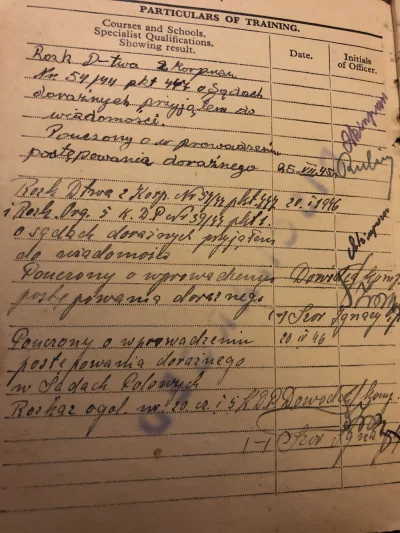 PARTICULARS OF TRAINING.
Courses and Schools.
Specialist Qualifications.
Showing result.
Date.
Initials
of Officer.
Rozk D-twa 2 Korpusu
Nr 54/44 pkt 447 o sądach
doraźnych przyjąłem do
wiadomości.
Pouczony o wprowadzeniu
postępowania doraźnego
Rozk. Dtwa 2 Korp. Nr pkt 447 20.II 1946
i Rozk. Org. 5 K.D.P Nr 39/44 pkt 1.
o sądach doraźnych przyjąłem
do wiadomości
Pouczony o wprowadzeniu Dowódca
postępowania doraźnego
(-) Szor Ignacy
Pouczony o wprowadzeniu 46
postępowania doraźnego
w Sądach Polowych
Rozkaz ogól. nr. 20 5 K.D.P Dowódca
(-) Szor